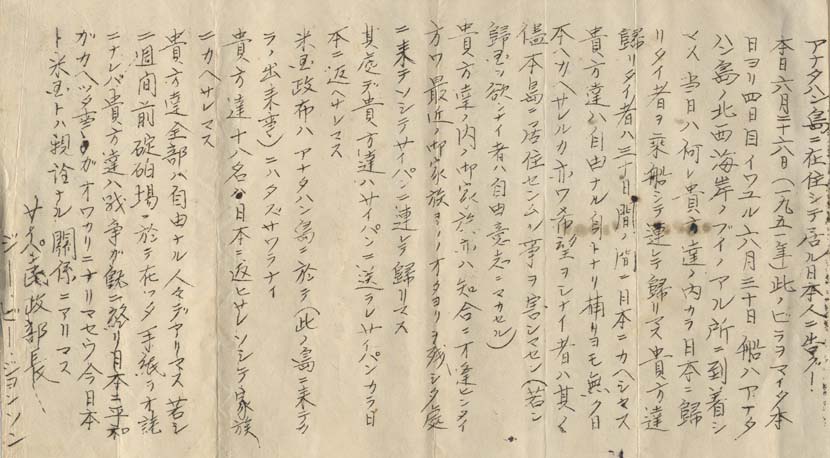 アナタハン島ニ在住シテ居ル日本人ニ告グ！
本日六月二十六日（一九五一年）此ノビラヲマイタ本
日ヨリ四日目イワユル六月三十日船ハアナタ
ハン島ノ北西海岸ノブイノアル所ニ到着シ
マス当日ハ何レ貴方達ノ内カラ日本ニ歸
リタイ者ヲ乗船シテ連レテ歸リマス貴方達
歸リタイ者ハ三十日間ノ間ニ日本ニカヘシマス
貴方達ハ自由ナル身トナリ捕リヨモ無ク日
本ヘカヘサレルカ亦ワ希望ヲシナイ者ハ其ノママ
本島ニ居住センムノ事ヲ害シマセン（若シ
歸国ヲ欲シナイ者ハ自由意志ニマカセル）
貴方達ノ内ノ御家族亦ハ知合ニオ逢ヒシタイ
方ワ最近ノ御家族ヨリノオタヨリヲ残シタ處
ニ来テンシテサイパンニ連レテ歸リマス
其處デ貴方達ハサイパンニ送ラレサイパンカラ日
本ニ返ヘサレマス
米国政布ハアナタハン島ニ於テ（此ノ島ニ来テカ
ラノ出来事）ニハタズサワラナイ
貴方達十八名ガ日本ニ返ヒサレソシテ家族
ニカヘサレマス
貴方達全部ハ自由ナル人々デアリマス若シ
二週間前碇泊場ニ於テ在ッタ手紙ヲオ読
ニナレバ貴方達ハ戦争ガ既ニ終リ日本ニ平和
ガカヘッタ事ガオワカリニナリマセウ今日本
ト米国トハ親詮ナル関係ニアリマス
サイパン民政部長
ジー・ビー・ジョンソン